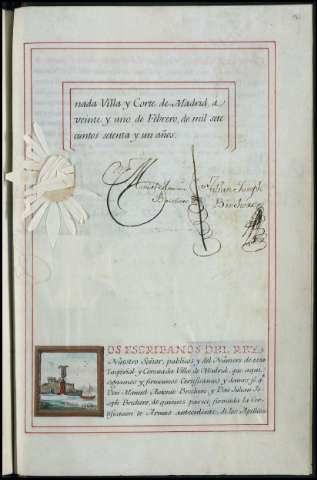 nada Villa y Corte de Madrid, á
veinte y uno de Febrero, de mil sete
cientos setenta y un años.
Julian Joseph
Brochero
OS ESCRIBANOS DEL REY
Nuestro Señor, publicos y del Numero de esta
Imperial y Coronada Villa de Madrid, que aqui
signamos y firmamos Certificamos y damos fé q.
Don Manuel Antonio Brochero, y Don Julian Jo-
seph Brochero, de quienes parece firmada la Cer-
tificacion de Armas antecedente, de los Apellidos